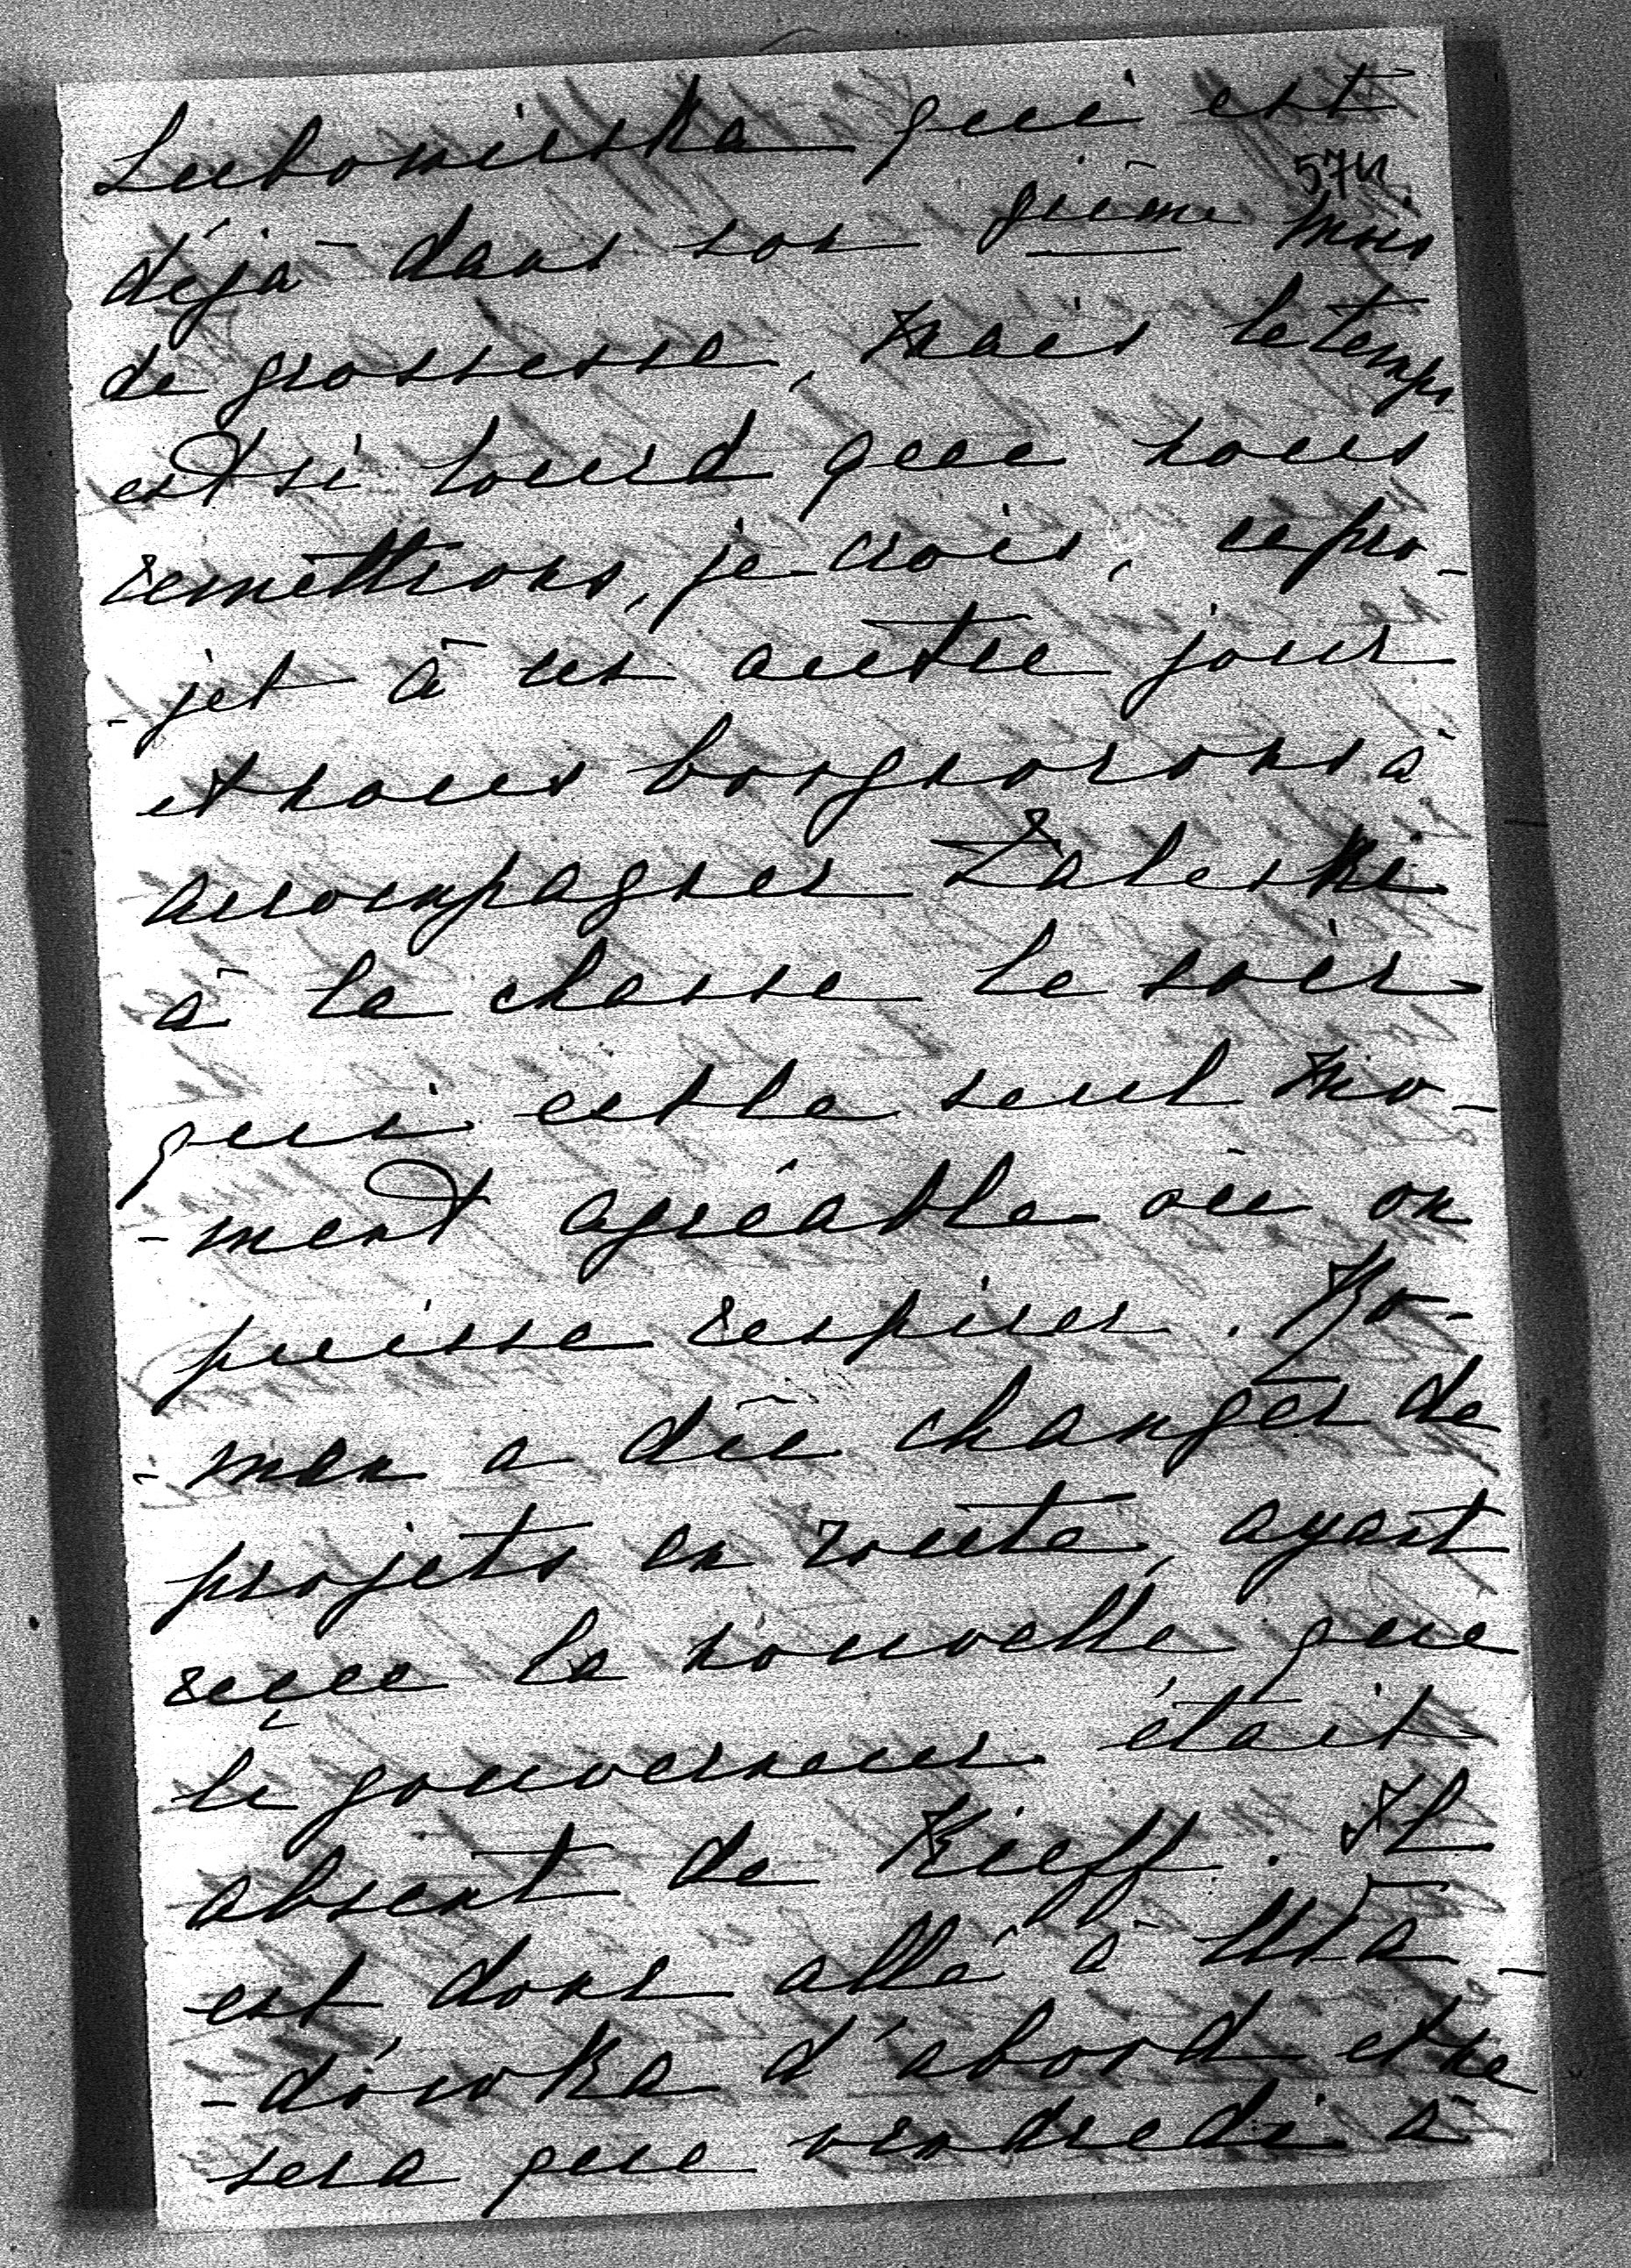 Lubomirska qui est
57v
déjà dans son gième mois
de grossesse, mais le temps
est si lourd que nous
remettrons, je crois, ce pro-
-jet à un autre jour
et nous bornerons à
accompagner Zaleski
à la chasse le soir
qui est le seul mo-
-ment agréable où on
puisse respirer. Ro-
-man a dû changer de
projets en route, ayant
reçu la nouvelle que
le gouverneur était
absent de Kieff. Il
est donc allé à Uła-
-dówka d'abord et ne
sera que vendredi à